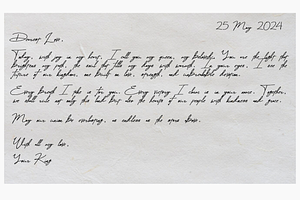 25 May 2024
Dearest Lise,
Today, with joy in my heart, I call you my queen, my beloved. You are the light that
brightens my path, the soul that fills my days with warmth. In your eyes, I see the
future of our kingdom, one built on love, strength, and unbreakable devotion.
Every breath I take is for you. Every victory I chase is in your name. Together,
we shall rule not only the land but also the hearts of our people with kindness and grace.
May our union be everlasting, as endless as the stars above.
With all my love,
Your King